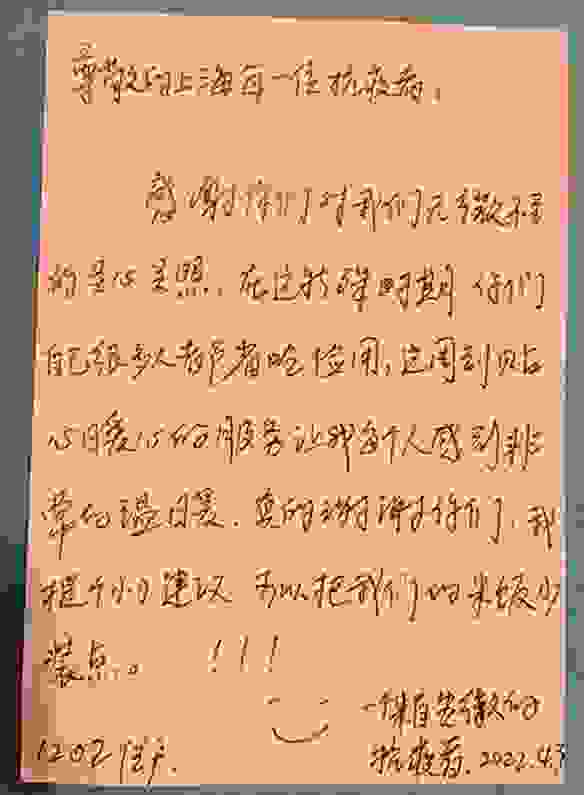 尊敬的上海每一位抗疫者,
感谢你们对我们无微不至
的关心关照.在这特殊时期你们
自己很多人都是省吃俭用,这周到贴
心暖心的服务让我每个人感到非
常的温暖.真的谢谢你们.我
提个小建议 可以把我们的米饭少
装点。 !!!
一个来自安徽的
1202住户. 抗疫者.2022.4.3